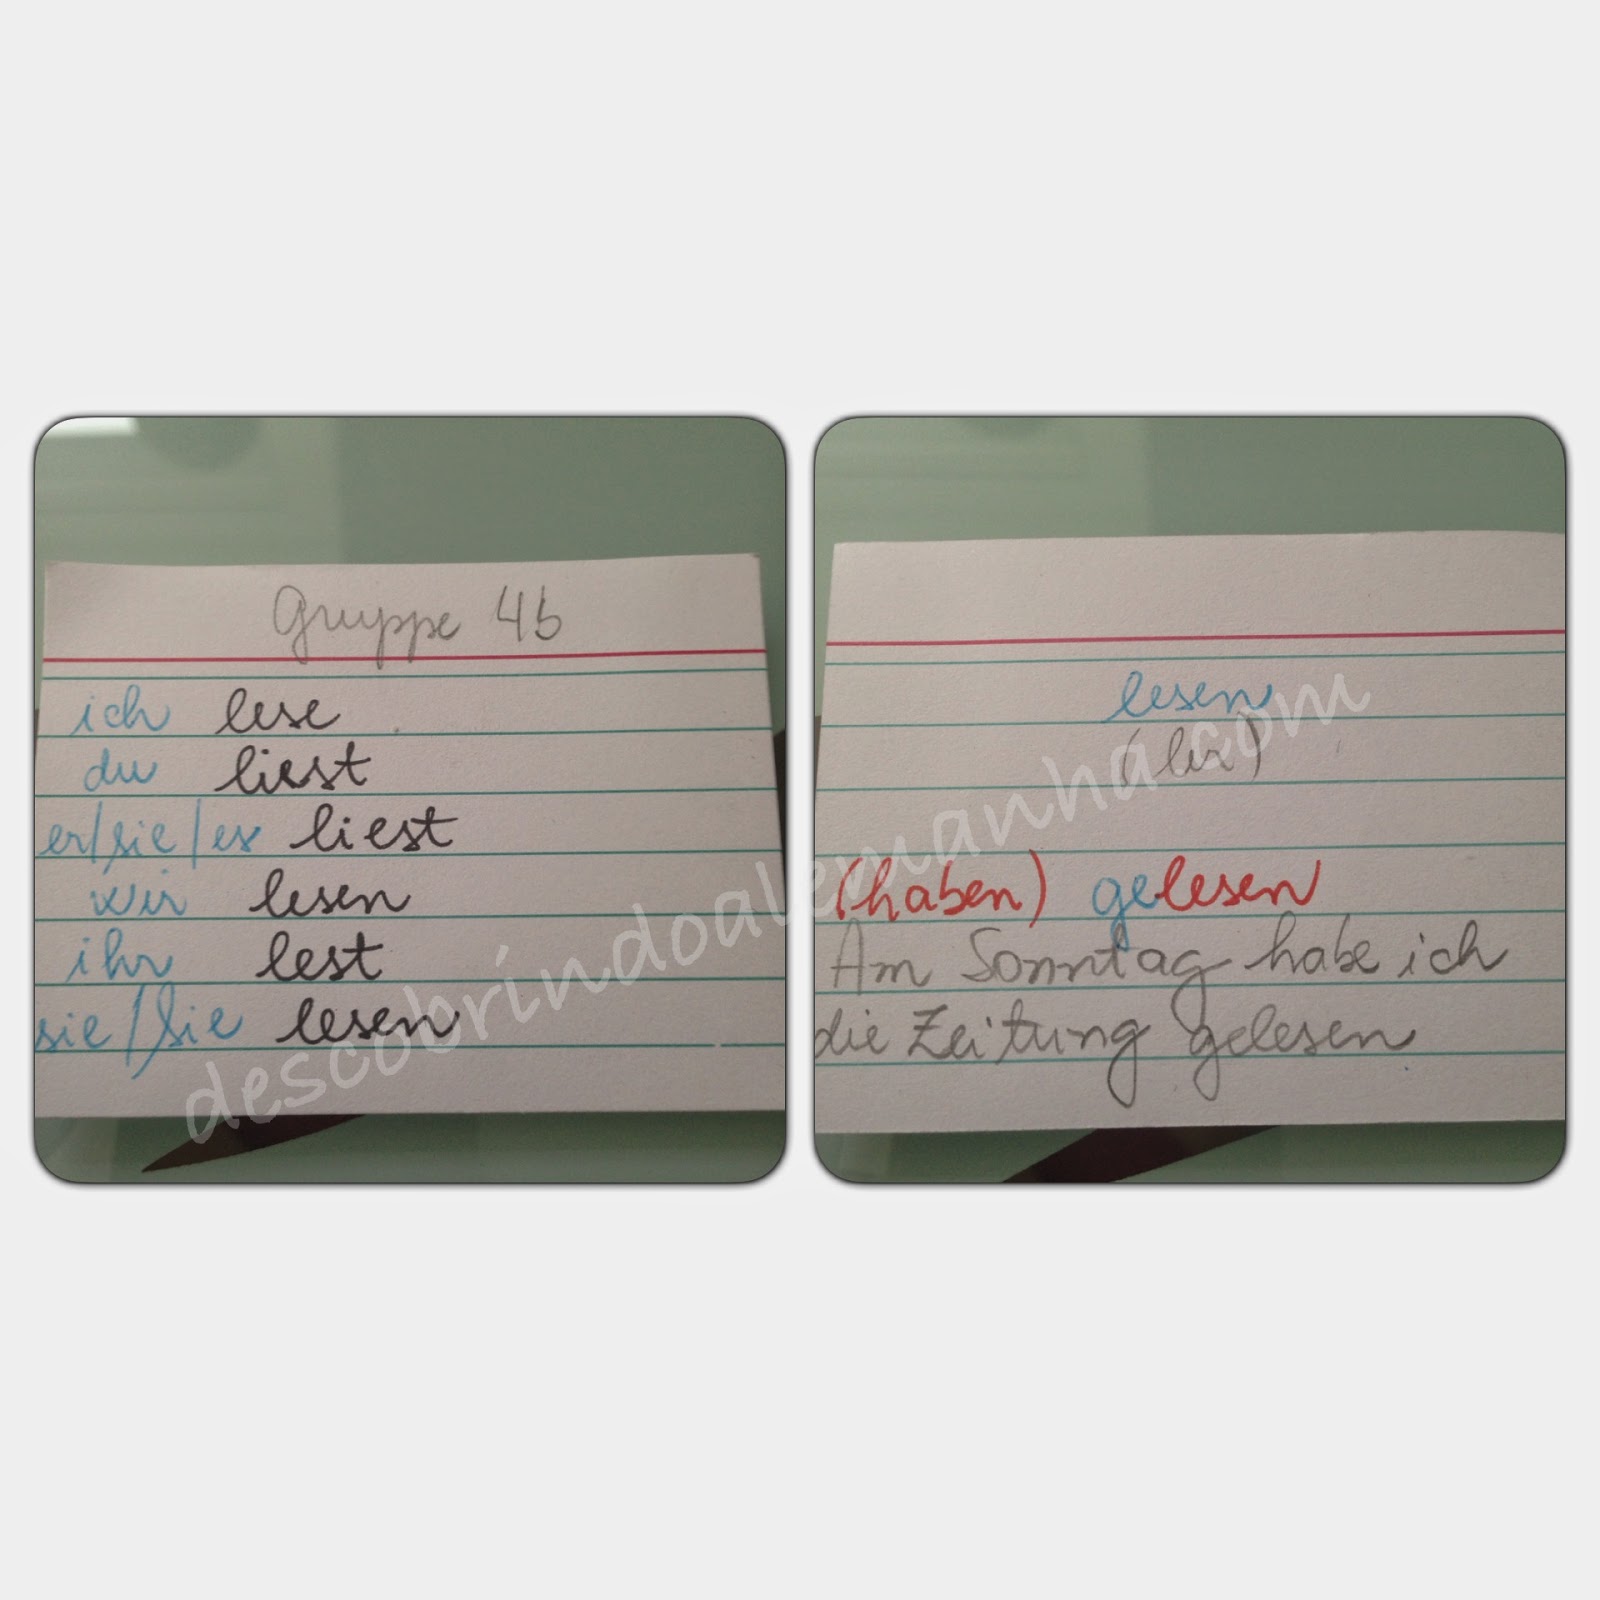 Gruppe 4b
ich lese
du liest
er/sie/es liest
wir lesen
ihr lest
sie/Sie lesen
lesen
(ler)
(haben) gelesen
Am Sonntag habe ich
die Zeitung gelesen
descobrindoalemanha.com